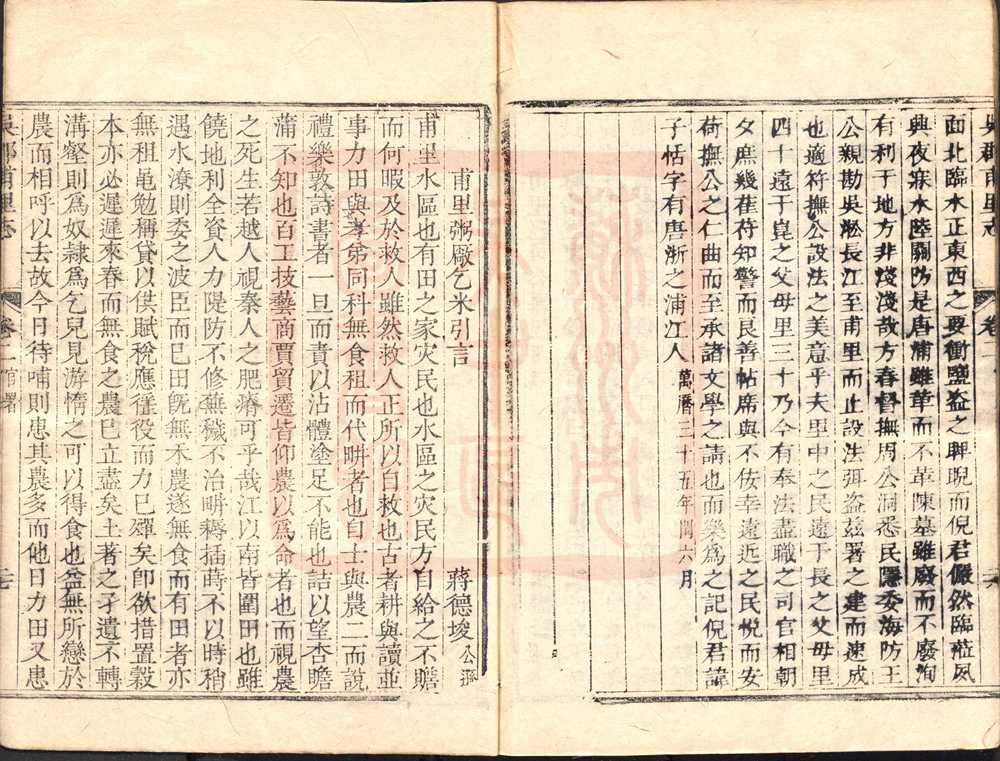 吳郡甫里志
卷二
面北臨水正東西之要衝鹽盜之睥睨而倪君儼然臨涖夙
興夜寐水陸關防是唐浦雖華而不革陳墓雖廢而不廢洵
有利于地方非淺淺哉方春督撫周公洞悉民隱委海防王
公親勘吳淞長江至甫里而止設法弭盜茲署之建而速成
也適符撫公設法之美意乎夫里中之民遠于長之父母里
四十遠于崑之父母里三十乃今有奉法盡職之司官相朝
夕庶幾萑苻知警而良善帖席與不佞幸遠近之民悅而安
荷撫公之仁曲而至承諸文學之請也而樂為之記倪君諱
子恬字有唐浙之浦江人
萬曆三十五年閏六月
甫里粥厰乞米引言 蔣德埈公遜
甫里水區也有田之家灾民也水區之灾民方自給之不贍
而何暇及於救人雖然救人正所以自救也古者耕與讀並
事力田與孝弟同科無食租而代畊者也自士與農二而說
禮樂敦詩書者一旦而責以沾體塗足不能也詰以望杏瞻
蒲不知也百工技藝商賈貿遷皆仰農以爲命者也而視農
之死生若越人視秦人之肥瘠可乎哉江以南皆圍田也雖
饒地利全資人力隄防不修蕪穢不治畊耨插蒔不以時稍
遇水潦則委之波臣而已田旣無木農遂無食而有田者亦
無租黽勉稱貸以供賦稅應徭役而力已殫矣卽欲措置穀
本亦必遲遲來春而無食之農已立盡矣土著之孑遺不轉
溝壑則爲奴隸爲乞兒見游惰之可以得食也益無所戀於
農而相呼以去故今日待哺則患其農多而他日力田又患
吳郡甫里志
卷二 官署